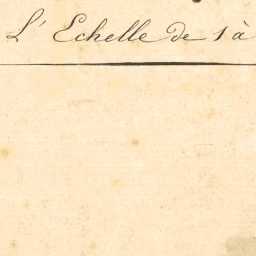 L'Echelle de 1 à